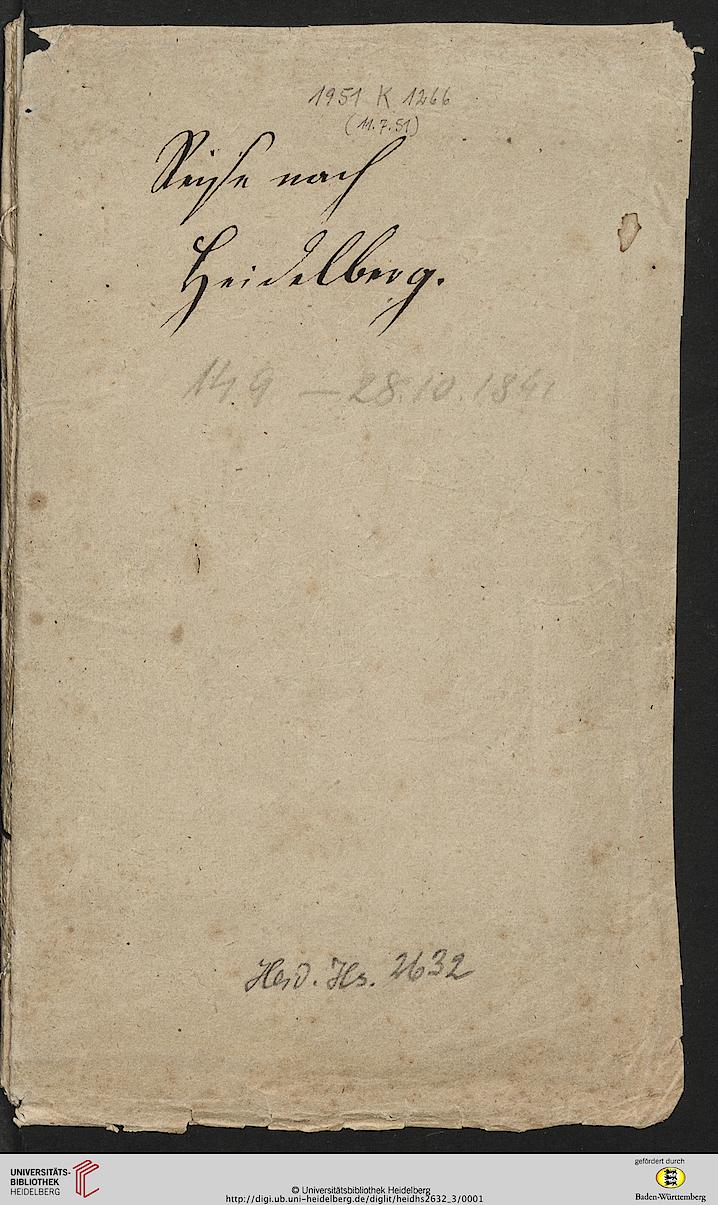 1951 K 1266
(11.7.51)
Reise nach
Heidelberg.
14.9 — 28.10.1841
Heid. Hs. 2632
UNIVERSITÄTS-
BIBLIOTHEK
HEIDELBERG
© Universitätsbibliothek Heidelberg
http://digi.ub.uni-heidelberg.de/diglit/heidhs2632_3/0001
gefördert durch
Baden-Württemberg